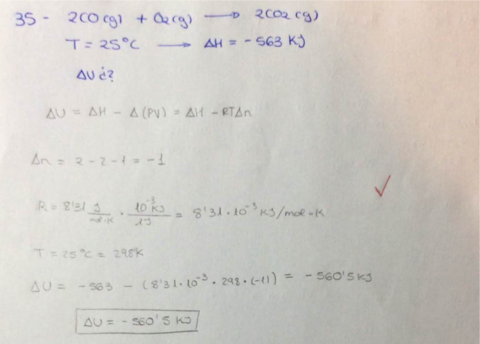 35 - 2CO(g) + O₂(g) ⟶ 2CO₂(g)
T = 25°C ⟶ ΔH = - 563 KJ
ΔU ¿?
ΔU = ΔH - Δ(PV) = ΔH - RTΔn
Δn = 2 - 2 - 1 = -1
R = 8'31 J/mol·K · 10⁻³ KJ/1J = 8'31 · 10⁻³ KJ/mol·K
T = 25°C = 298K
ΔU = - 563 - (8'31 · 10⁻³ · 298 · (-1)) = - 560'5 KJ
ΔU = - 560'5 KJ